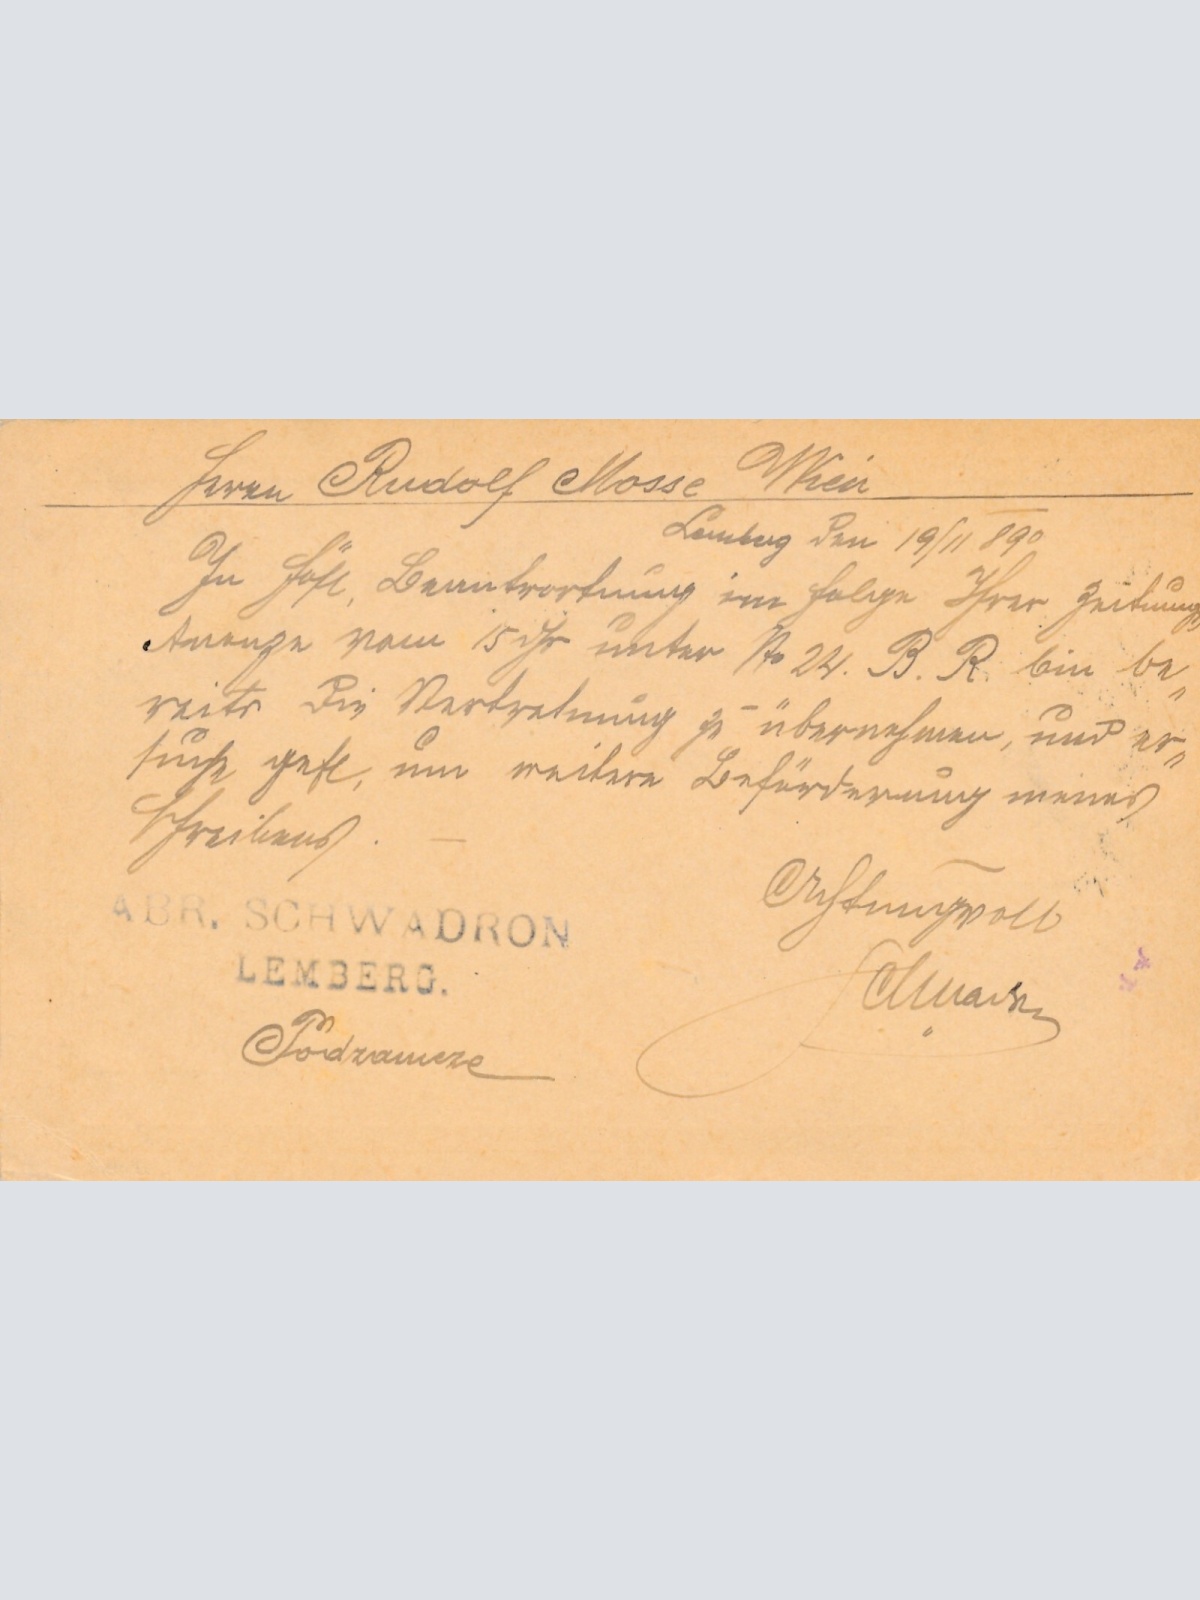 Herrn Rudolf Mosse Wien
Lemberg den 19/11 890
In höfl. Beantwortung im Folge Ihrer Zeitungs
Anonze vom 15 dß unter No 24. B. R. bin be„
reits die Vertretnung zu übernehmen, und er„
suche gefl, um weitere Beförderung meines
Schreibens. —
Achtungvoll
ABR. SCHWADRON
LEMBERG.
Podzamcze